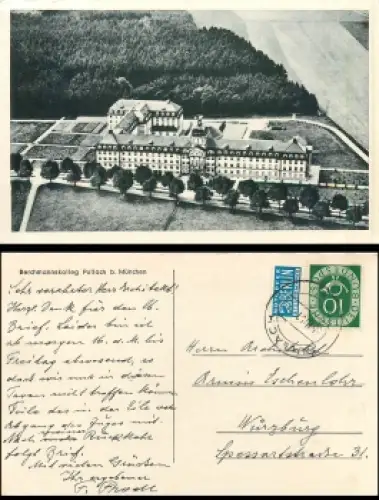 Berchmanskolleg Pullach b. München
Sehr verehrter Herr Architekt!
Herzl. Dank für den 16.
Brief. Leider bin ich
ab morgen 16. d. M. bis
Freitag abwesend, so
dass wir uns in diesen
Tagen nicht treffen können
Teile das in der Eile vor
Abgang des Zuges mit.
Nach meiner Rückkehr
folgt Brief.
Mit vielen Grüssen
Ihr ergebener
BERLIN
10
Herrn Architekt
Erwin Eschenlohr
Würzburg
Spessartstraße 31.